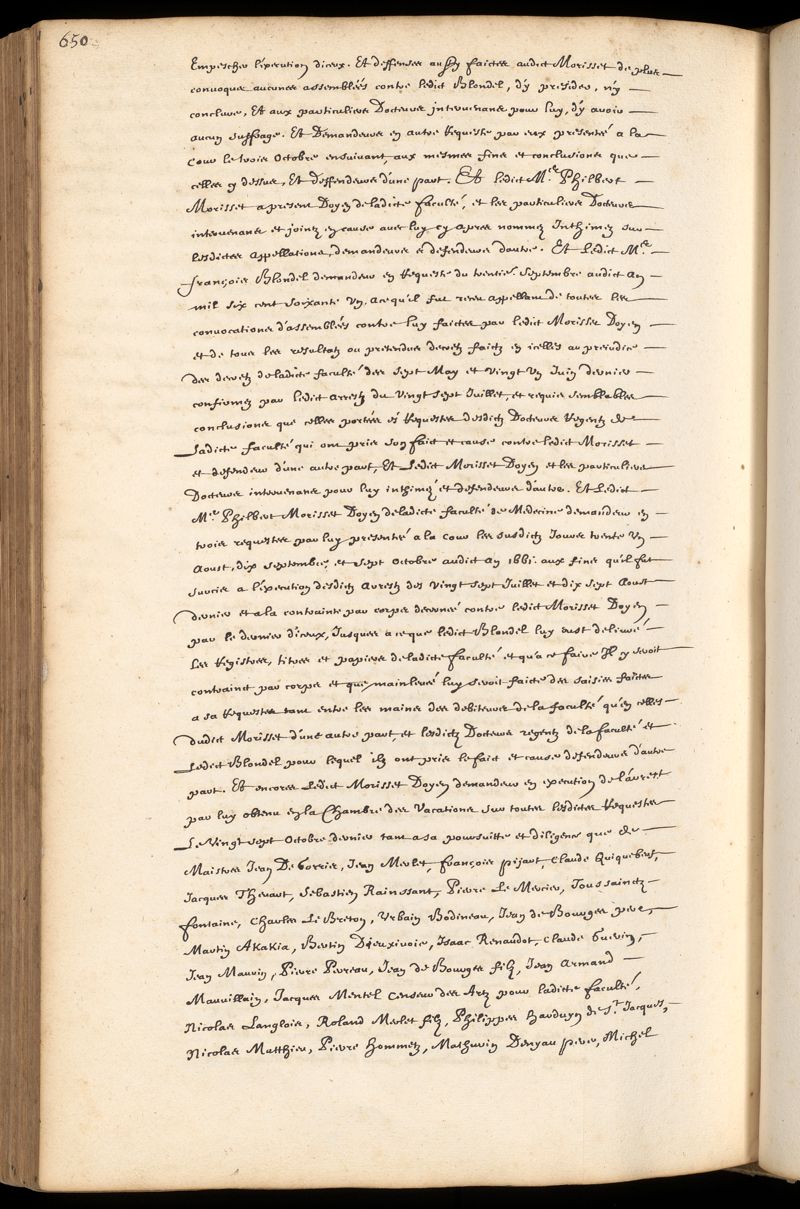 650
Empescher l'execution d'iceux. Et deffenses aussy faictes audict Morisset de plus
convoquer aucunes assemblées contre ledict Blondel, d'y presider, n'y
conclure, Et aux particuliers Docteurs intervenans pour luy, d'y avoir
aucun suffrage. Et Demandeurs en autre Requeste par eux presenté a la
Cour le troise Octobre ensuivant, aux mesmes fins et conclusions que
celles cy dessus, Et deffendeurs d'une part. Et ledict Mre Philbert
Morisset a present Doyen de ladicte faculté, et les particuliers Docteurs
intervenans et joinctz en cause avec luy cy apres nommez Inthimez sur
lesdictes appellations, demandeurs & defendeurs d'autre. Et Ledict Mre
françois Blondel demandeur en Requeste du trentie. Septembre audict an
mil six cent soixante un, a ce qu'il fut receu appellant de toutes les
convocations d'assemblées contre luy faictes par ledict Morisset Doyen
et de tous les resultatz ou pretendus decretz faictz en icelles au prejudice
des decretz de ladicte faculté des sept May et vingt un Juin dernier
confirmez par ledict arrest du vingt sept Juillet, et requis semblables
conclusions que celles portées és Requestes desdictz Docteurs Regentz de
Ladicte faculté qui ont pris son faict et cause contre ledict Morisset
et defendeur d'une autre part, Et Ledict Morisset Doyen et les particuliers
Docteurs intervenans pour luy inthimez et defendeurs d'autre. Et Ledict
Mre Philbert Morisset Doyen de ladicte faculté de Medecine demandeur en
trois requestes par luy presenté a la Cour les susdictz Jours trente un
Aoust, dix septembre, et sept Octobre audict an 1661. aux fins qu'il fut
surcis a l'execution desdictz Arrestz des vingt sept Juillet et dix sept Aoust
dernier et a la contrainte par corps decerneé contre ledict Morisset Doyen
par le dernier d'iceux, Jusques a ce que ledict Blondel luy eust delivré
Les Registres, tiltres et papiers de ladicte faculté et qu'a ce faire Il y seroit
contrainct par corps et que mainlevé luy seroit faicte des saisies faictes
a sa Requeste tant entre les mains des debiteurs de la faculté qu'en celles
dudict Morisset d'une autre part, et lesdictz Docteurs regentz de la faculté et
Ledict Blondel pour lequel ilz ont pris le faict et cause defendeurs d'autre
part. Et encores Ledict Morisset Doyen demandeur en execution de l'arrest
par luy obtenu en la Chambre des Vacations sur toutes lesdictes Requestes
Le Vingt sept Octobre dernier tant a sa poursuitte et diligence que de
Maistres Jean De Gorris, Jean Merlet, françois pijart, Claude Quiquebeuf,
Jacques Thevart, Sebastien Rainssant, Pierre Le Mercier, Toussainctz
fontaine, Charles Le Breton, Urbain Bodineau, Jean de Bourges pere,
Martin Akakia, Bertin Dieuxivoie, Isaac Renaudot, Claude Guerin,
Jean Maurin, Pierre Perreau, Jean de Bourges filz, Jean Armand
Mauvillain, Jacques Mentel Censeur des Artz pour ladicte faculté,
Nicolas Langlois, Roland Merlet filz, Philippes Harduyn de St Jacques,
Nicolas Matthieu, Pierre Hommetz, Mathurin Denyau pere, Michel